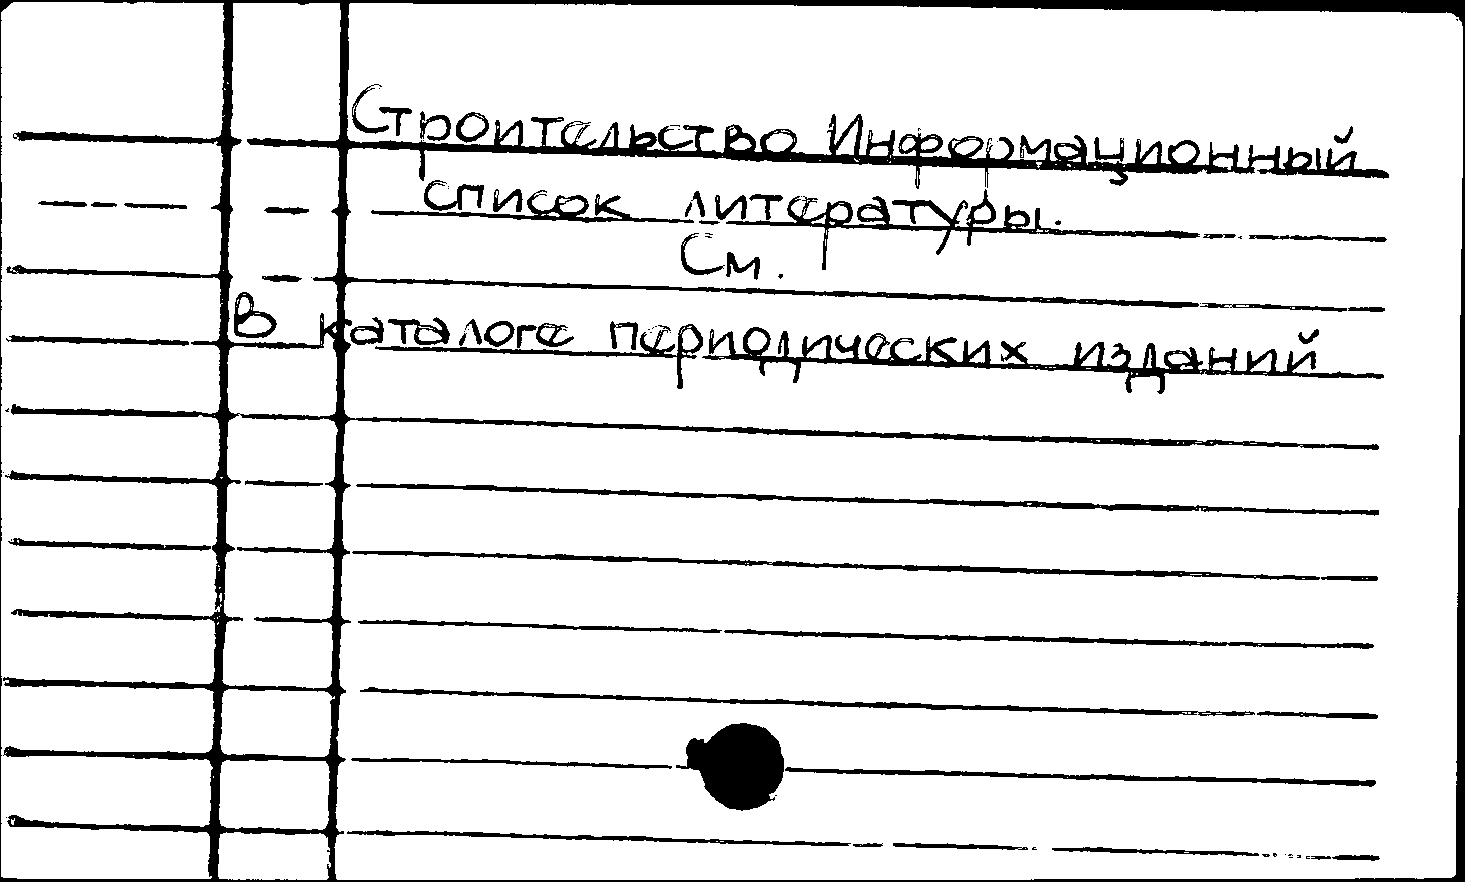 Строительство Информационный
список литературы.
См.
В каталоге периодических изданий